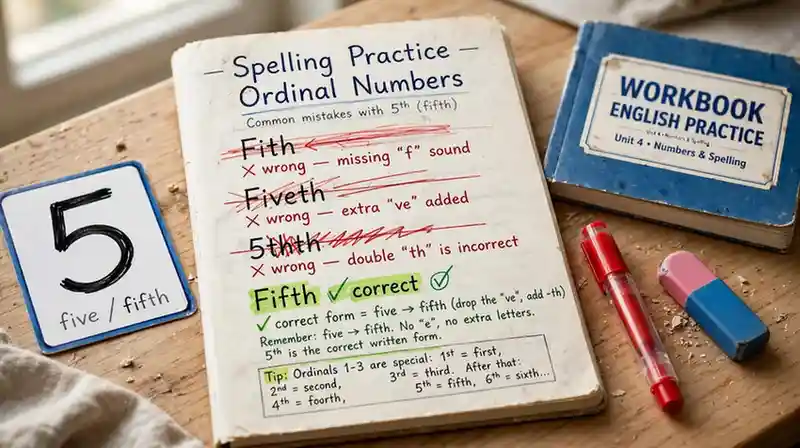 — Spelling Practice —
Ordinal Numbers
Common mistakes with 5th (fifth)
Fith
✗ wrong — missing "f" sound
Fiveth
✗ wrong — extra "ve" added
5thth
✗ wrong — double "th" is incorrect
Fifth ✓ correct ✓
✓ correct form = five → fifth (drop the "ve", add -th)
Remember: five → fifth. No "e", no extra letters.
5th is the correct written form.
Tip: Ordinals 1-3 are special: 1st = first,
2nd = second, 3rd = third. After that:
4th = foorth, 5th = fifth, 6th = sixth...
5
five / fifth
WORKBOOK
ENGLISH PRACTICE
Unit 4 • Numbers & Spelling